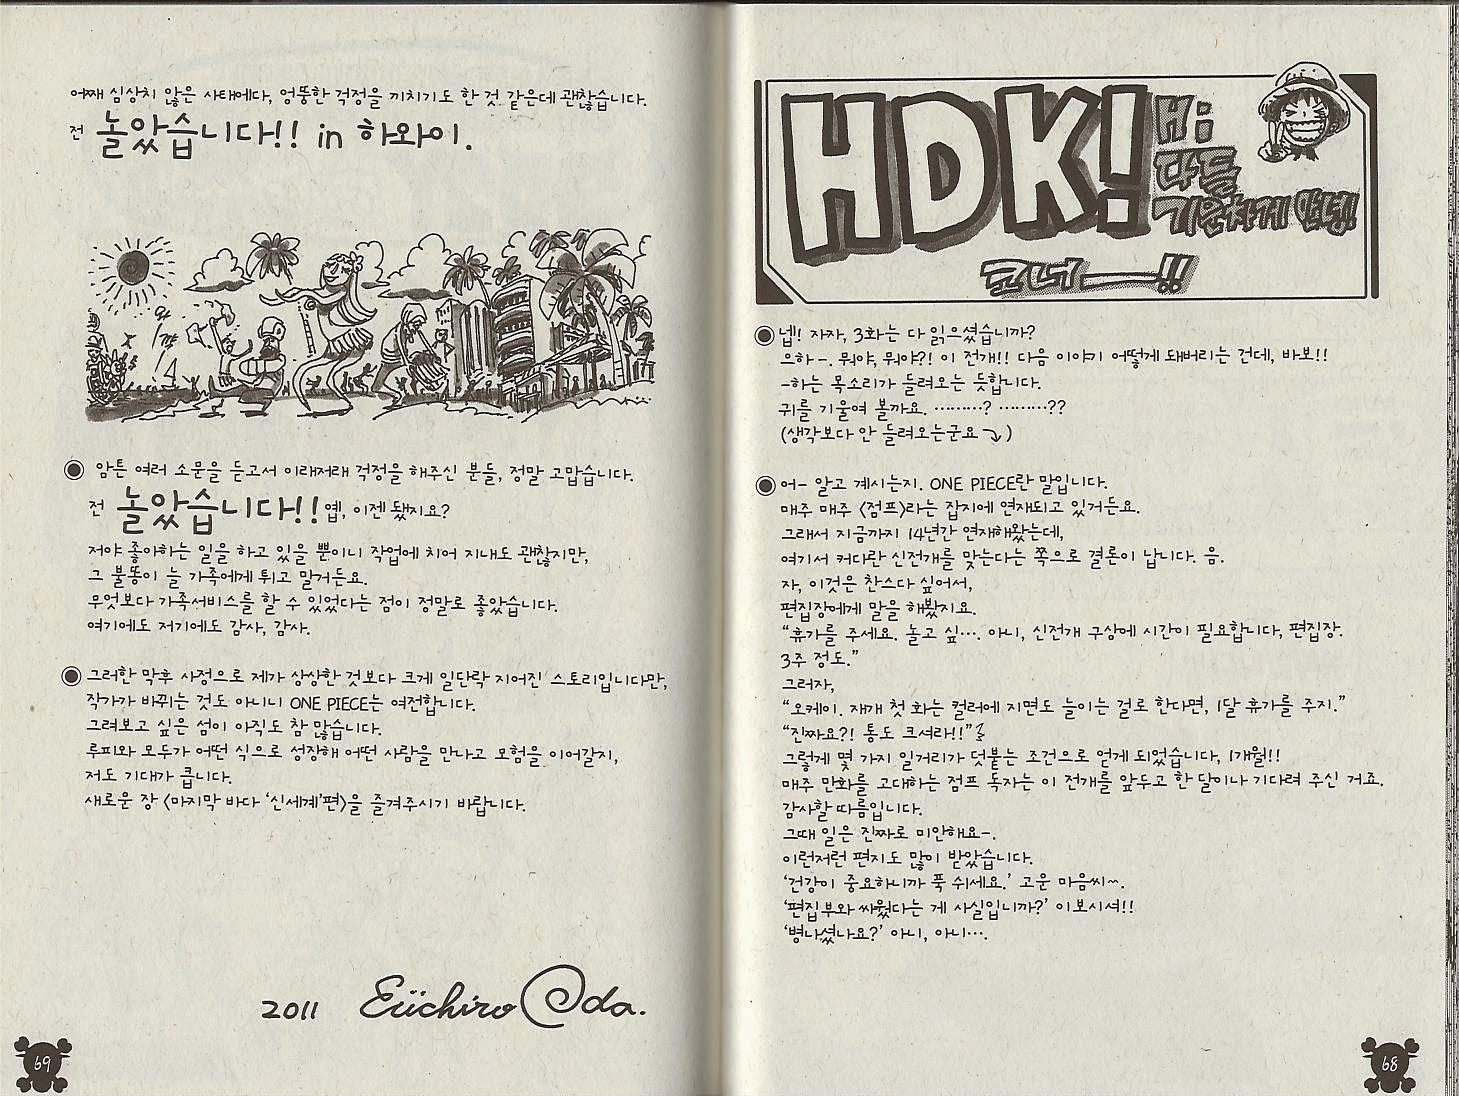 HDK!
Hi
다들
기운차게 안녕!
코너——!!
넵! 자자, 3화는 다 읽으셨습니까?
으하-. 뭐야, 뭐야?! 이 전개!! 다음 이야기 어떻게 돼버리는 건데, 바보!!
-하는 목소리가 들려오는 듯합니다.
귀를 기울여 볼까요. ………? ………??
(생각보다 안 들려오는군요⤵)
어- 알고 계시는지. ONE PIECE란 말입니다.
매주 매주 〈점프〉라는 잡지에 연재되고 있거든요.
그래서 지금까지 14년간 연재해왔는데,
여기서 커다란 신전개를 맞는다는 쪽으로 결론이 납니다. 음.
자, 이것은 찬스다 싶어서,
편집장에게 말을 해봤지요.
“휴가를 주세요. 놀고 싶…. 아니, 신전개 구상에 시간이 필요합니다, 편집장.
3주 정도.”
그러자,
“오케이. 재개 첫 화는 컬러에 지면도 늘이는 걸로 한다면, 1달 휴가를 주지.”
“진짜요?! 통도 크셔라!!”
그렇게 몇 가지 일거리가 덧붙는 조건으로 얻게 되었습니다, 1개월!!
매주 만화를 고대하는 점프 독자는 이 전개를 앞두고 한 달이나 기다려 주신 거죠.
감사할 따름입니다.
그때 일은 진짜로 미안해요-.
이런저런 편지도 많이 받았습니다.
‘건강이 중요하니까 푹 쉬세요.’ 고운 마음씨~.
‘편집부와 싸웠다는 게 사실입니까?’ 이보시셔!!
‘병나셨나요?’ 아니, 아니….
68
어째 심상치 않은 사태에다, 엉뚱한 걱정을 끼치기도 한 것 같은데 괜찮습니다.
전 놀았습니다!! in 하와이.
암튼 여러 소문을 듣고서 이래저래 걱정을 해주신 분들, 정말 고맙습니다.
전 놀았습니다!! 옙, 이젠 됐지요?
저야 좋아하는 일을 하고 있을 뿐이니 작업에 치어 지내도 괜찮지만,
그 불똥이 늘 가족에게 튀고 말거든요.
무엇보다 가족서비스를 할 수 있었다는 점이 정말로 좋았습니다.
여기에도 저기에도 감사, 감사.
그러한 막후 사정으로 제가 상상한 것보다 크게 일단락 지어진 스토리입니다만,
작가가 바뀌는 것도 아니니 ONE PIECE는 여전합니다.
그려보고 싶은 섬이 아직도 참 많습니다.
루피와 모두가 어떤 식으로 성장해 어떤 사람을 만나고 모험을 이어갈지,
저도 기대가 큽니다.
새로운 장 〈마지막 바다 ‘신세계’편〉을 즐겨주시기 바랍니다.
2011 Eiichiro Oda.
69